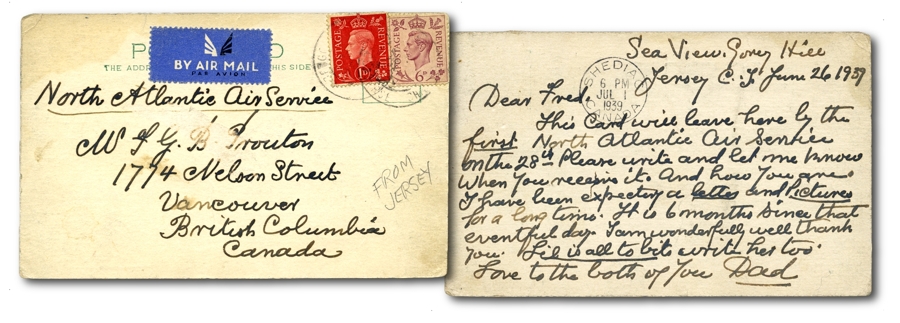 POST CARD
THE ADDRESS THIS SIDE
BY AIR MAIL
PAR AVION
POSTAGE REVENUE
1D
POSTAGE REVENUE
6D
North Atlantic Air Service
Mr F G. B Prouton
1774 Nelson Street
Vancouver
British Columbia
Canada
FROM
JERSEY
Sea View. Gorey Hill
Jersey C. I. June 26 1939
SHEDIAC
6 PM
JUL 1
1939
CANADA
Dear Fred.
This Card will leave here by the
first North Atlantic Air Service
on the 28th Please write and let me know
When You receive it. And how You are.
I have been expecting a letter and Pictures
for a long time. It is 6 months since that
eventful day. I am wonderfully well thank
you. Lil is all to bits write her too.
Love to the both of You Dad